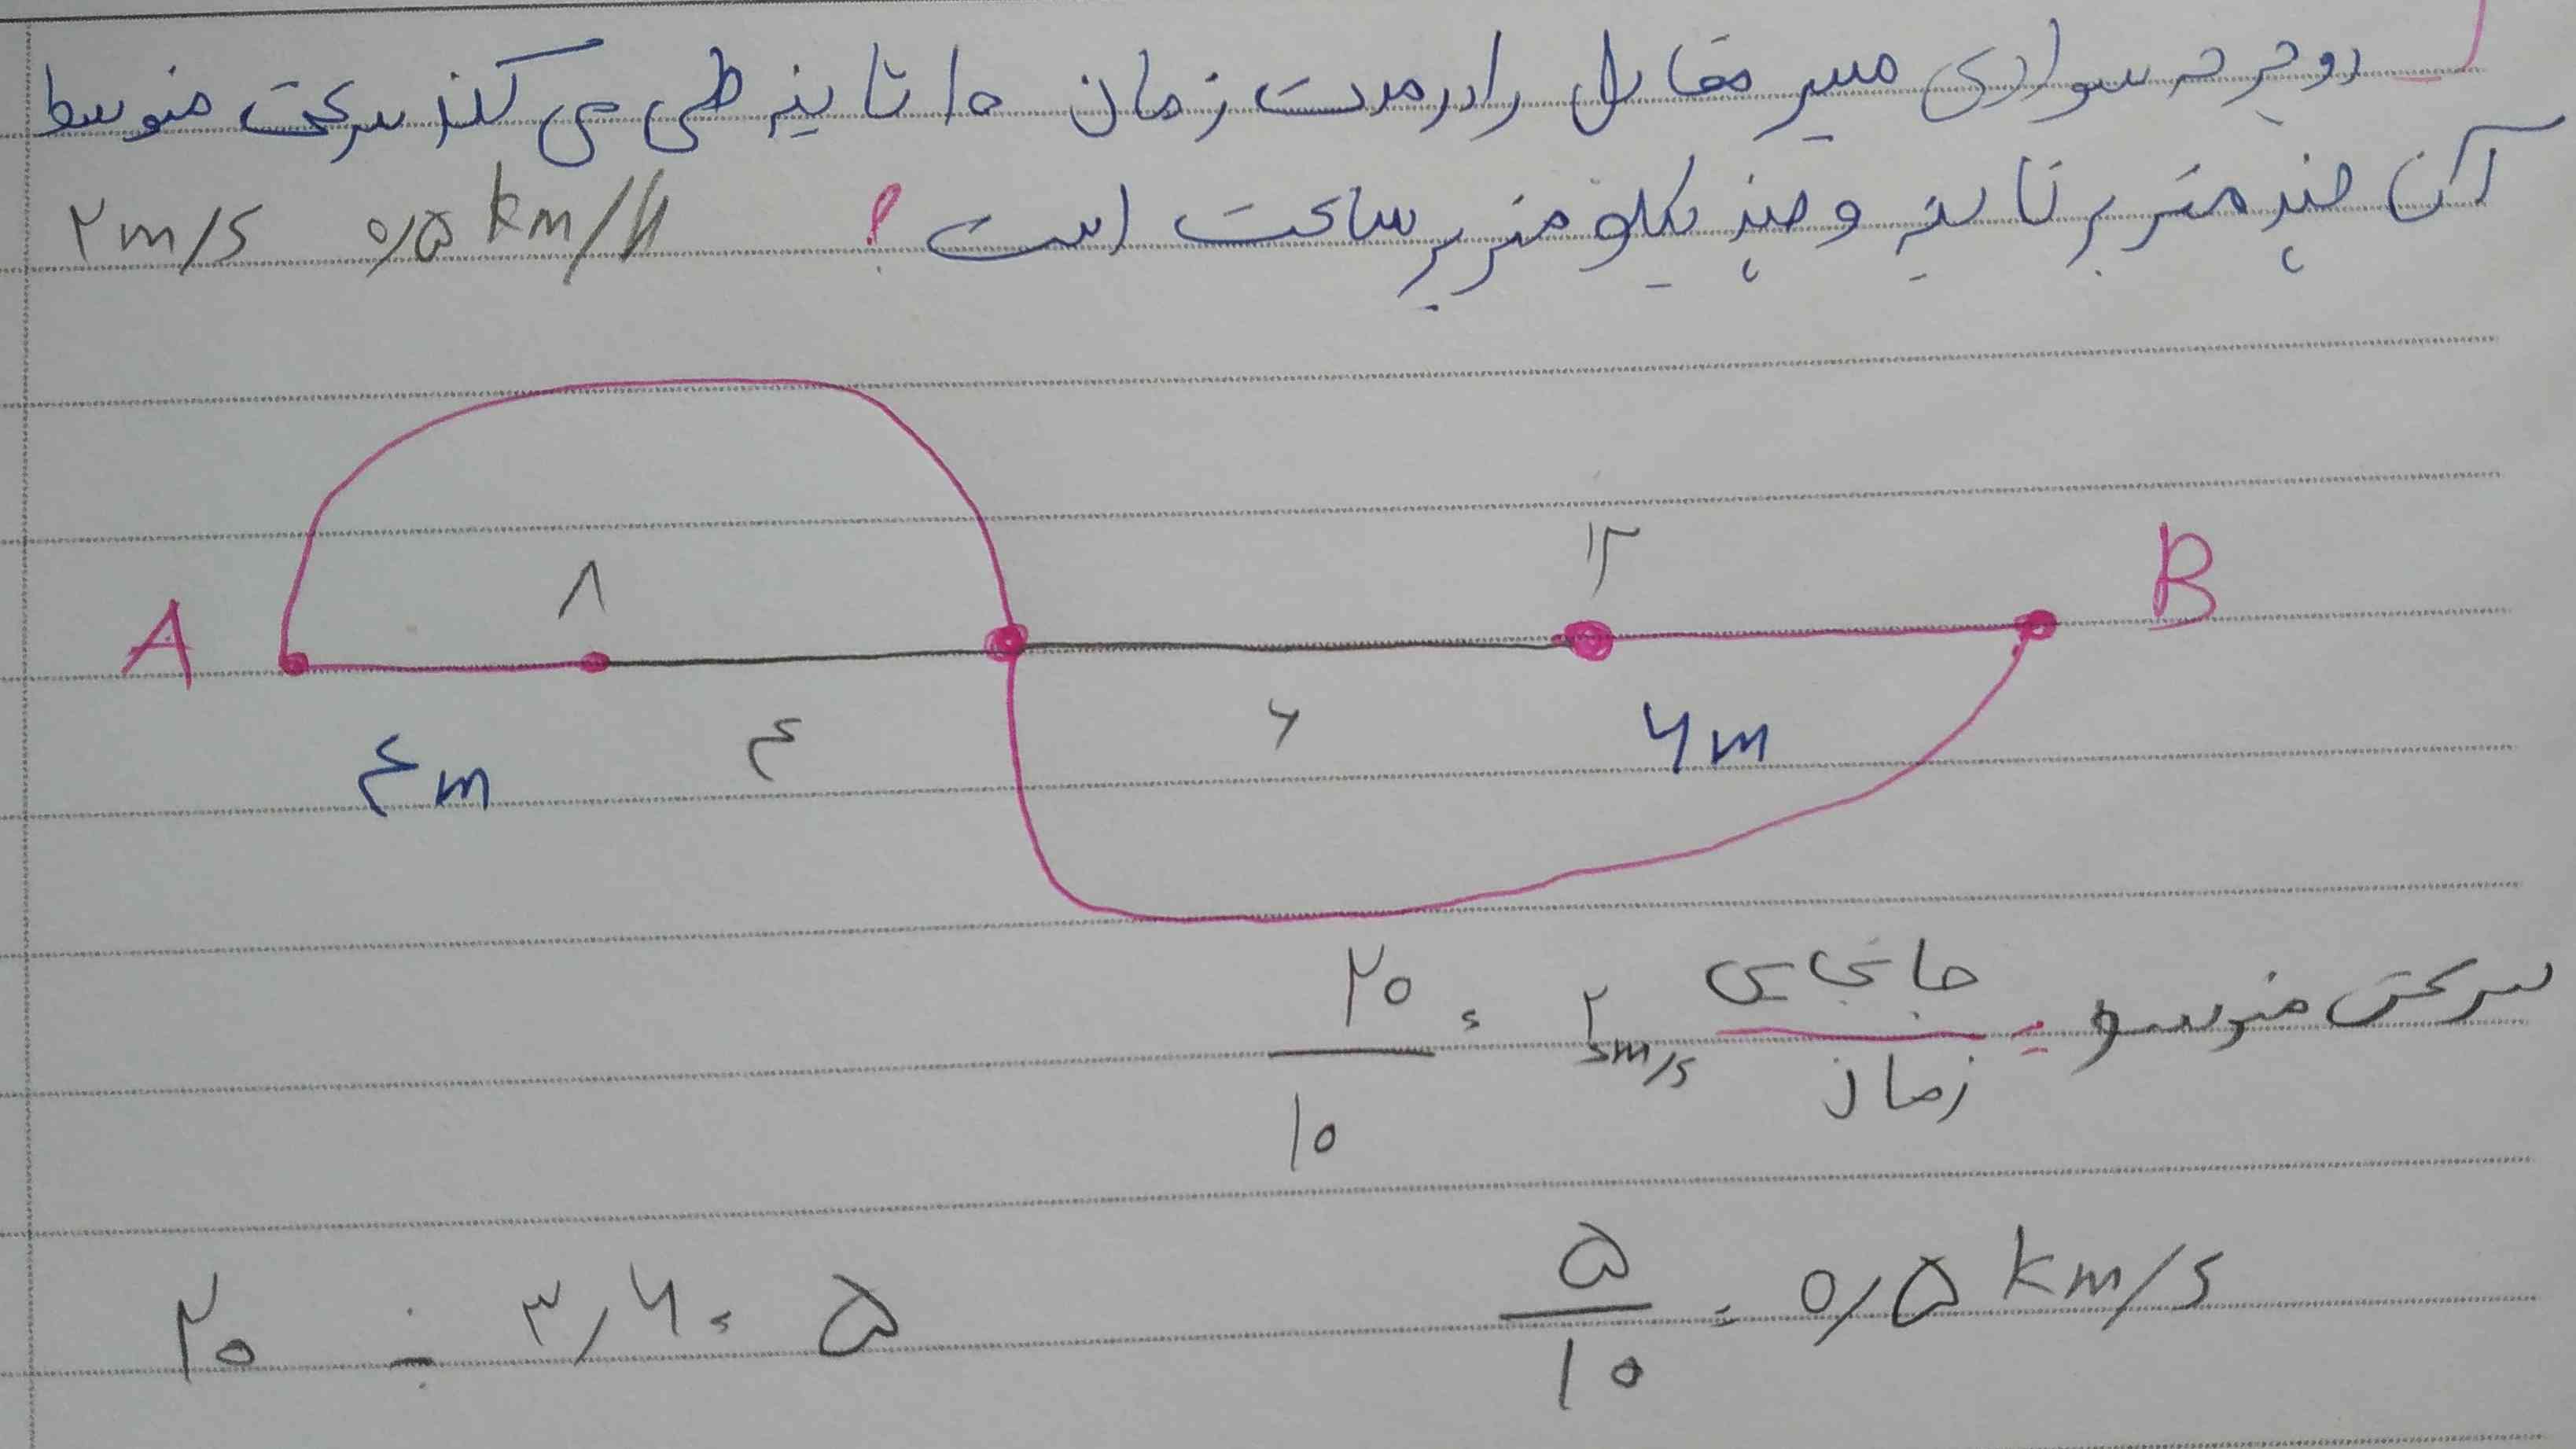 دوچرخه سواری مسیر مقابل را در مدت زمان ۱۰ ثانیه طی می کند سرعت متوسط
آن چند متر بر ثانیه و چند کیلومتر بر ساعت است ؟ ۰/۵ km/h ۲m/s
۱۲
۸
A B
۴m ۴ ۶ ۶m
سرعت متوسط = جابجایی
زمان
۲۰
۱۰ = ۲ m/s
۲۰ ÷ ۳/۶ = ۵
۵
۱۰ = ۰/۵ km/s